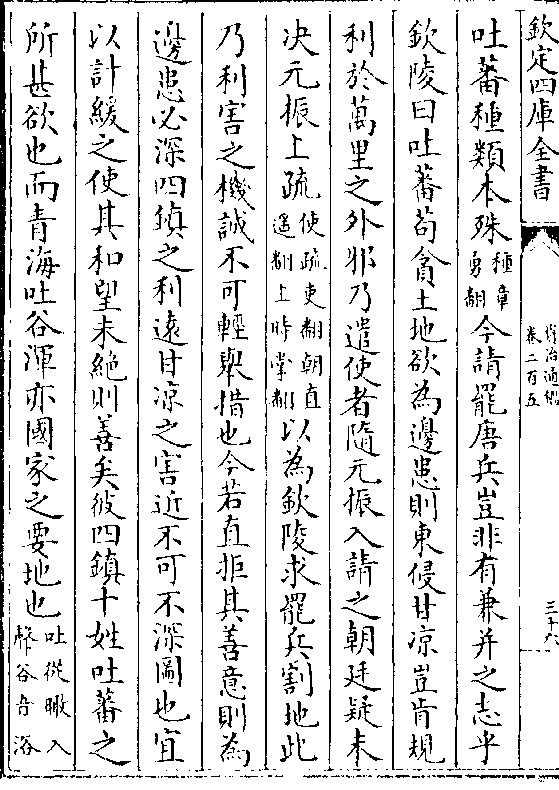 欽定四庫全書
資治通鑑
卷二百五
三十六
吐蕃種類本殊種章勇翻今請罷唐兵豈非有兼并之志乎
欽陵曰吐蕃苟貪土地欲為邊患則東侵甘凉豈肯規
利於萬里之外邪乃遣使者隨元振入請之朝廷疑未
决元振上疏使疏吏翻朝直遥翻上時掌翻以為欽陵求罷兵割地此
乃利害之機誠不可輕舉措也今若直拒其善意則為
邊患必深四鎮之利遠甘凉之害近不可不深圖也宜
以計緩之使其和望未絶則善矣彼四鎮十姓吐蕃之
所甚欲也而青海吐谷渾亦國家之要地也吐從暾入聲谷音浴